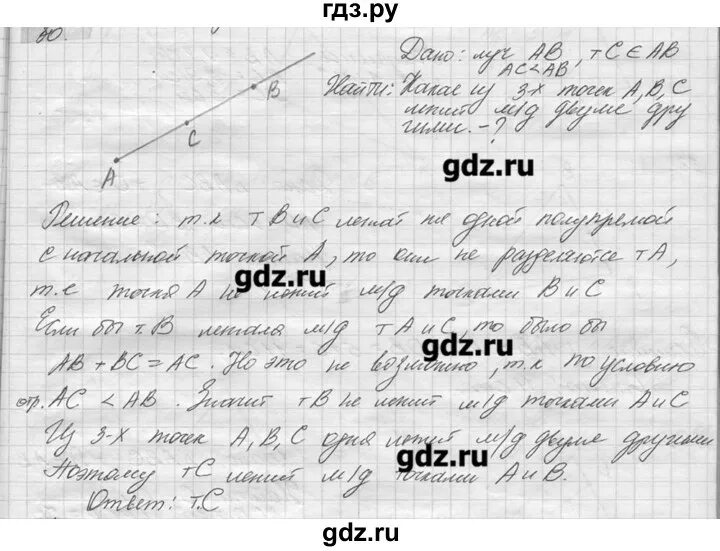 гдз.ру
30.
Дано: луч AB, тC∈AB
AC<AB
B
Найти: Какая из 3-х точек A, B, C
лежит м/д двумя дру
C
гими. -?
A
gdz.ru
Решение: т.к т B и C лежат на одной полупрямой
с начальной точкой A, то они не разделяются тA,
gdz.ru
т.е точка A не лежит м/д точками B и C
Если бы т. B лежала м/д т A и C, то было бы
gdz.ru
AB + BC = AC. Но это не возможно, т.к по условию
отр. AC < AB. Значит тB не лежит м/д точками A и C
Из 3-х точек A, B, C одна лежит м/д двумя другими
gdz.ru
Поэтому тC лежит м/д точками A и B.
Ответ: т.C
gdz.ru